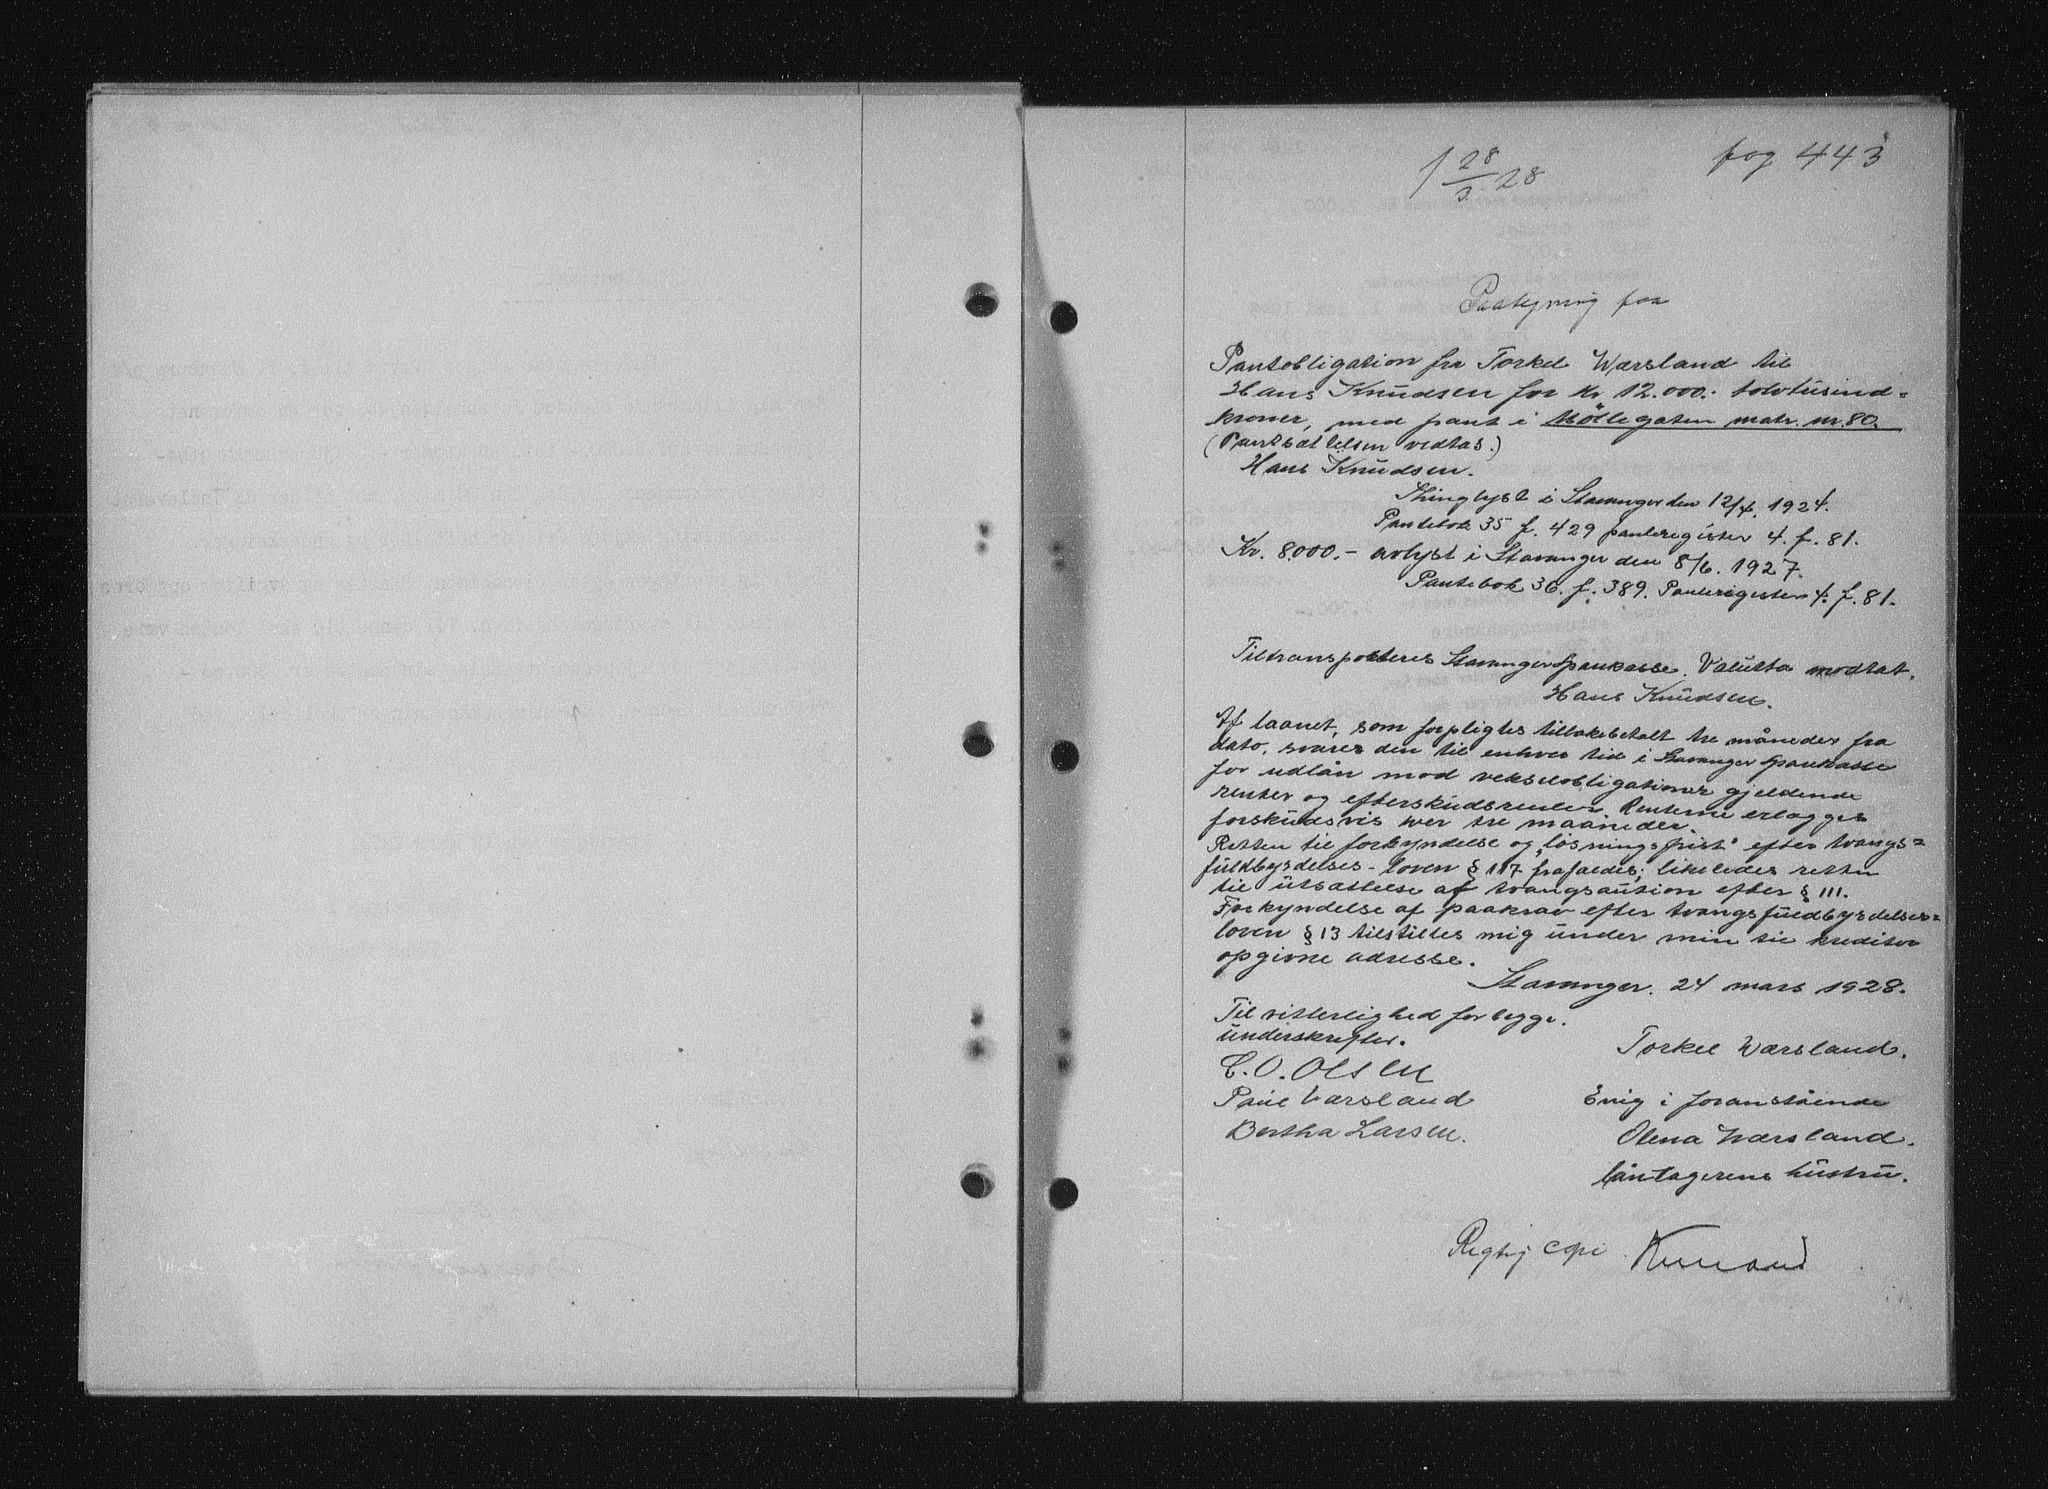 1 28/3 28
pag 443
Paategning paa
Pantobligation fra Torkel Wærsland til
Hans Knudsen for Kr 12.000.- tolvtusind-
kroner, med pant i Möllegaten matr. nr. 80.
(Pantsættelsen vedtas.)
Hans Knudsen.
Thinglyst i Stavanger den 12/4. 1924.
Pantebok 35 f. 429 panteregister 4. f. 81.
Kr. 8000.- avlyst i Stavanger den 8/6. 1927.
Pantebok 36. f. 389. Panteregister 4. f. 81.
Tiltransporteres Stavanger Sparekasse. Valutta modtat.
Hans Knudsen.
Af laanet, som forpligtes tilbakebetalt tre måneder fra
dato, svares den til enhver tid i Stavanger Sparekasse
for udlån mod vekselobligationer gjeldende
renter og efterskudsrenter. Renterne erlægges
forskudsvis hver tre maaneder.
Retten til forkyndelse og "løsningsfrist" efter tvangs=
fuldbyrdelses-loven § 117 frafaldes; likeledes retten
til utsættelse af tvangsaution efter § 111.
Forkyndelse af paakrav efter tvangsfuldbyrdelses=
loven § 13 tilstilles mig under min til kreditor
opgivne adresse.
Stavanger. 24 mars 1928.
Til vitterlighed for begge
underskrifter.
Torkel Wærsland.
C. O. Olsen
Paul Værsland
Enig i foranstående
Bertha Larsen.
Olena Wærsland.
låntagerens hustru.
Rigtig copi